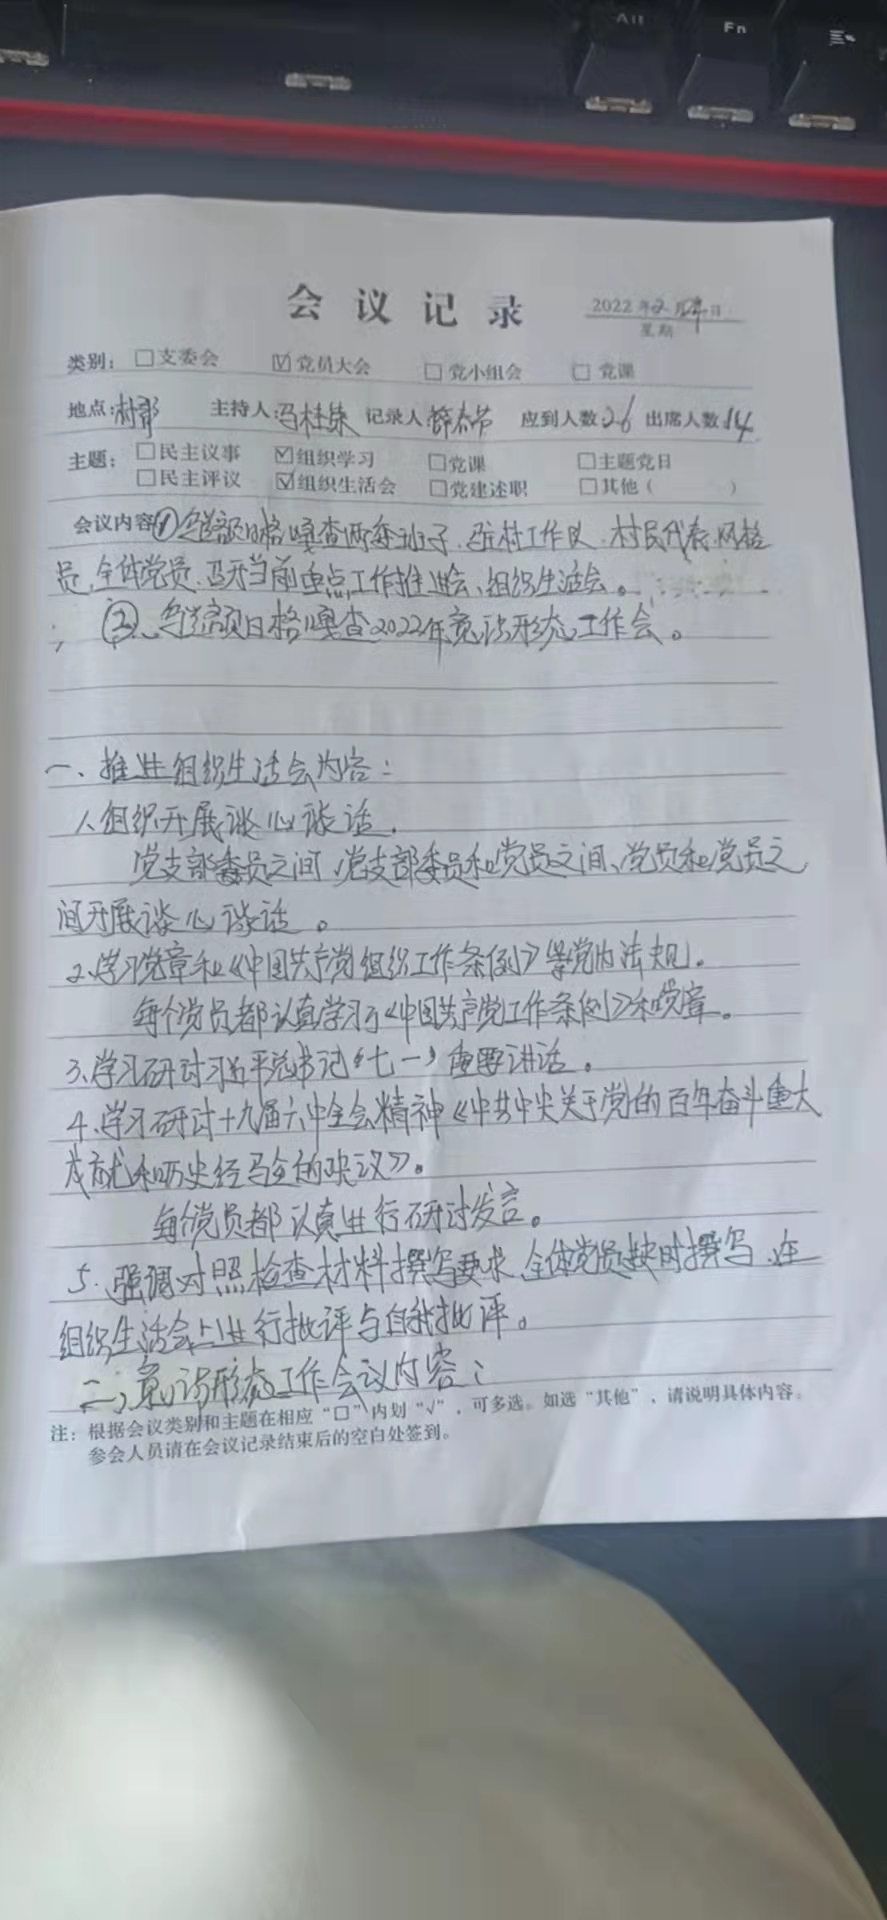 Alt
Fn
会议记录
2022年2月 日
星期
类别：□支委会 ☑党员大会 □党小组会 □党课
地点：村部 主持人：冯 记录人 应到人数26 出席人数14
主题：□民主议事 ☑组织学习 □党课 □主题党日
□民主评议 ☑组织生活会 □党建述职 □其他（ ）
会议内容①乌兰额日格嘎查两委班子、驻村工作队、村民代表、网格
员、全体党员、召开当前重点工作推进会、组织生活会。
②、乌兰额日格嘎查2022年意识形态工作会。
一、推进组织生活会内容：
1、组织开展谈心谈话。
党支部委员之间、党支部委员和党员之间、党员和党员之
间开展谈心谈话。
2、学习党章和《中国共产党组织工作条例》等党内法规。
每个党员都认真学习了《中国共产党工作条例》和党章。
3、学习研讨习近平总书记《七一》重要讲话。
4、学习研讨十九届六中全会精神《中共中央关于党的百年奋斗重大
成就和历史经验的决议》。
每个党员都认真进行研讨发言。
5、强调对照检查材料撰写要求，全体党员按时撰写、在
组织生活会上进行批评与自我批评。
二、意识形态工作会议内容：
注：根据会议类别和主题在相应“□”内划“√”，可多选。如选“其他”，请说明具体内容。
参会人员请在会议记录结束后的空白处签到。